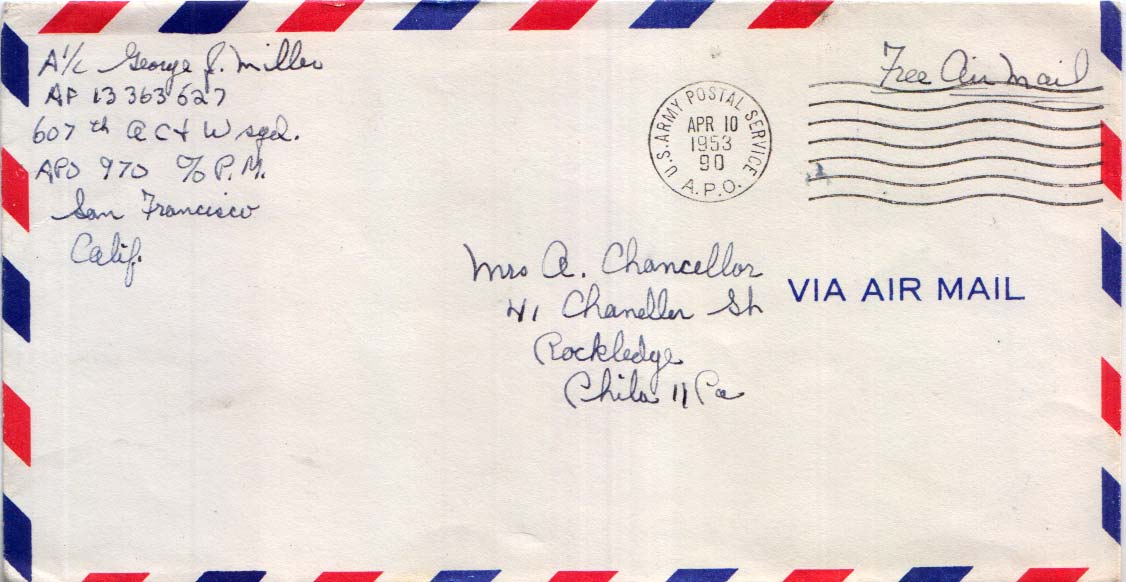 A1/c George J. Miller
AF 13 363 627
607th AC+W sqd.
APO 970 c/o P.M.
San Francisco
Calif.
Free Air Mail
U.S. ARMY POSTAL SERVICE
APR 10
1953
90
A.P.O.
Mrs A. Chancellor
41 Chandler St
Rockledge
Phila 11 Pa
VIA AIR MAIL